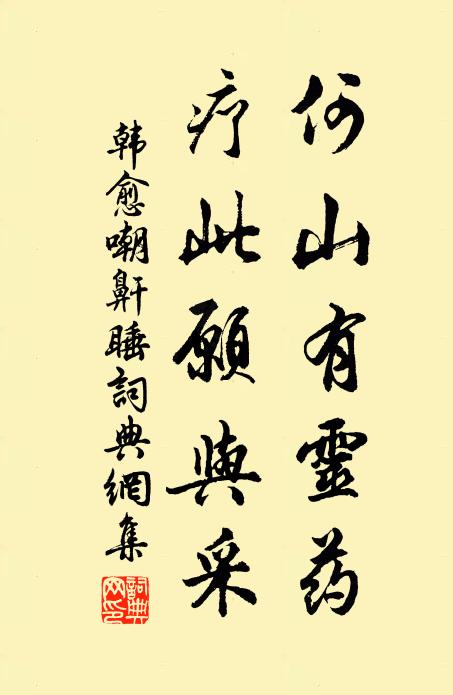 何山有靈药
疗此願與采
韩愈嘲鼾睡詞典網集